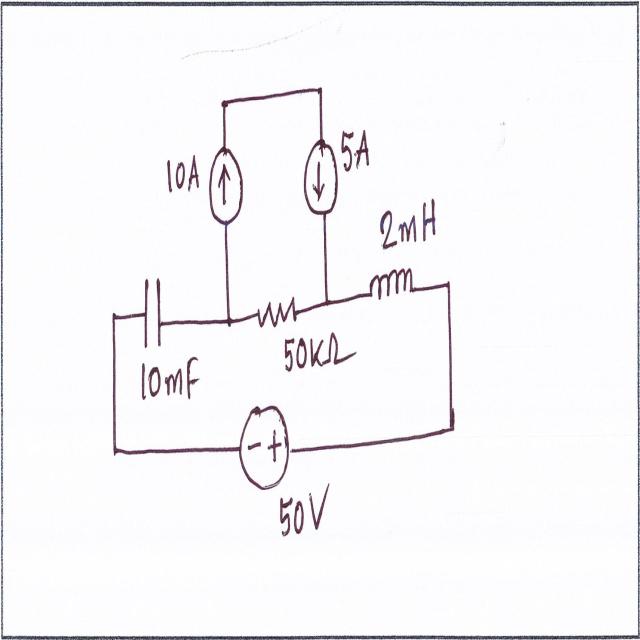 10A
5A
2mH
10mF
50KΩ
- +
50V